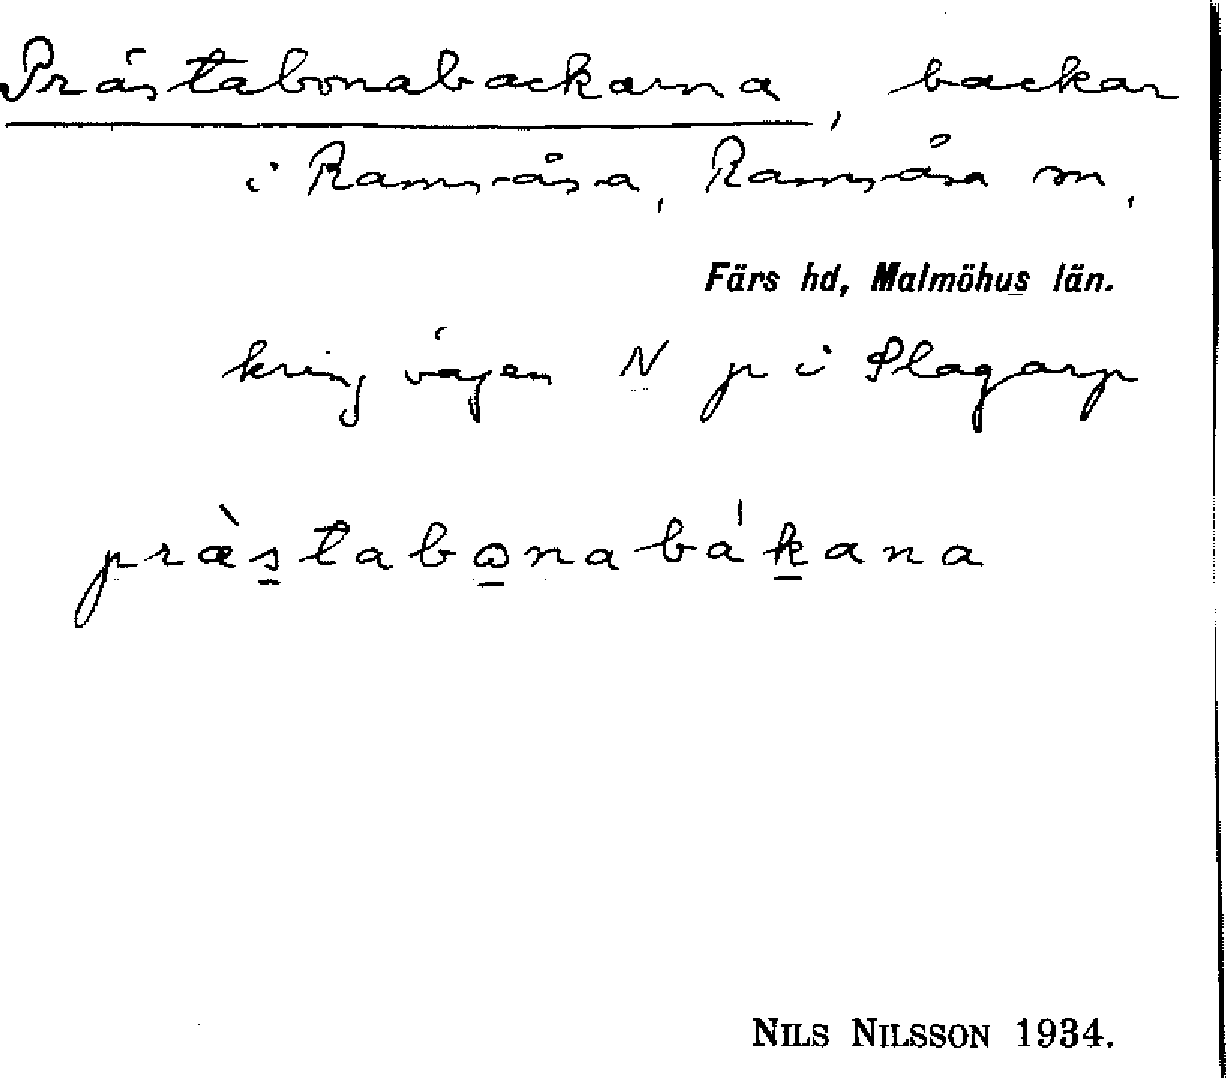 Prästabonabackarna, backar
i Ramsåsa, Ramsåsa sn,
Färs hd, Malmöhus län.
kring vägen N p i Slagarp
præ̀stabωnabákana
NILS NILSSON 1934.